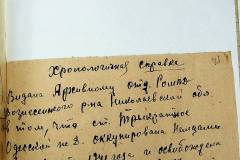 Хронологичная справка
Видана Архивному отд. Ромнз
Вознесенского р-на Николаевской обл.
в том, что ст. Трикратное
Одесской ж. д. оккупирована немцами
1941 года и освобождена